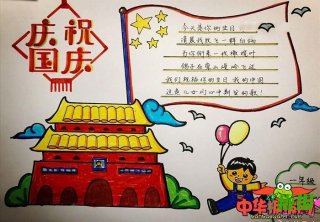 庆祝
国庆
今天是你的生日
清晨我放飞一群白鸽
为你衔来一枚橄榄叶
鸽子在崇山峻岭飞过
我们祝福你的生日 我的中国
这是儿女们心中期望的歌!
一年级
中华